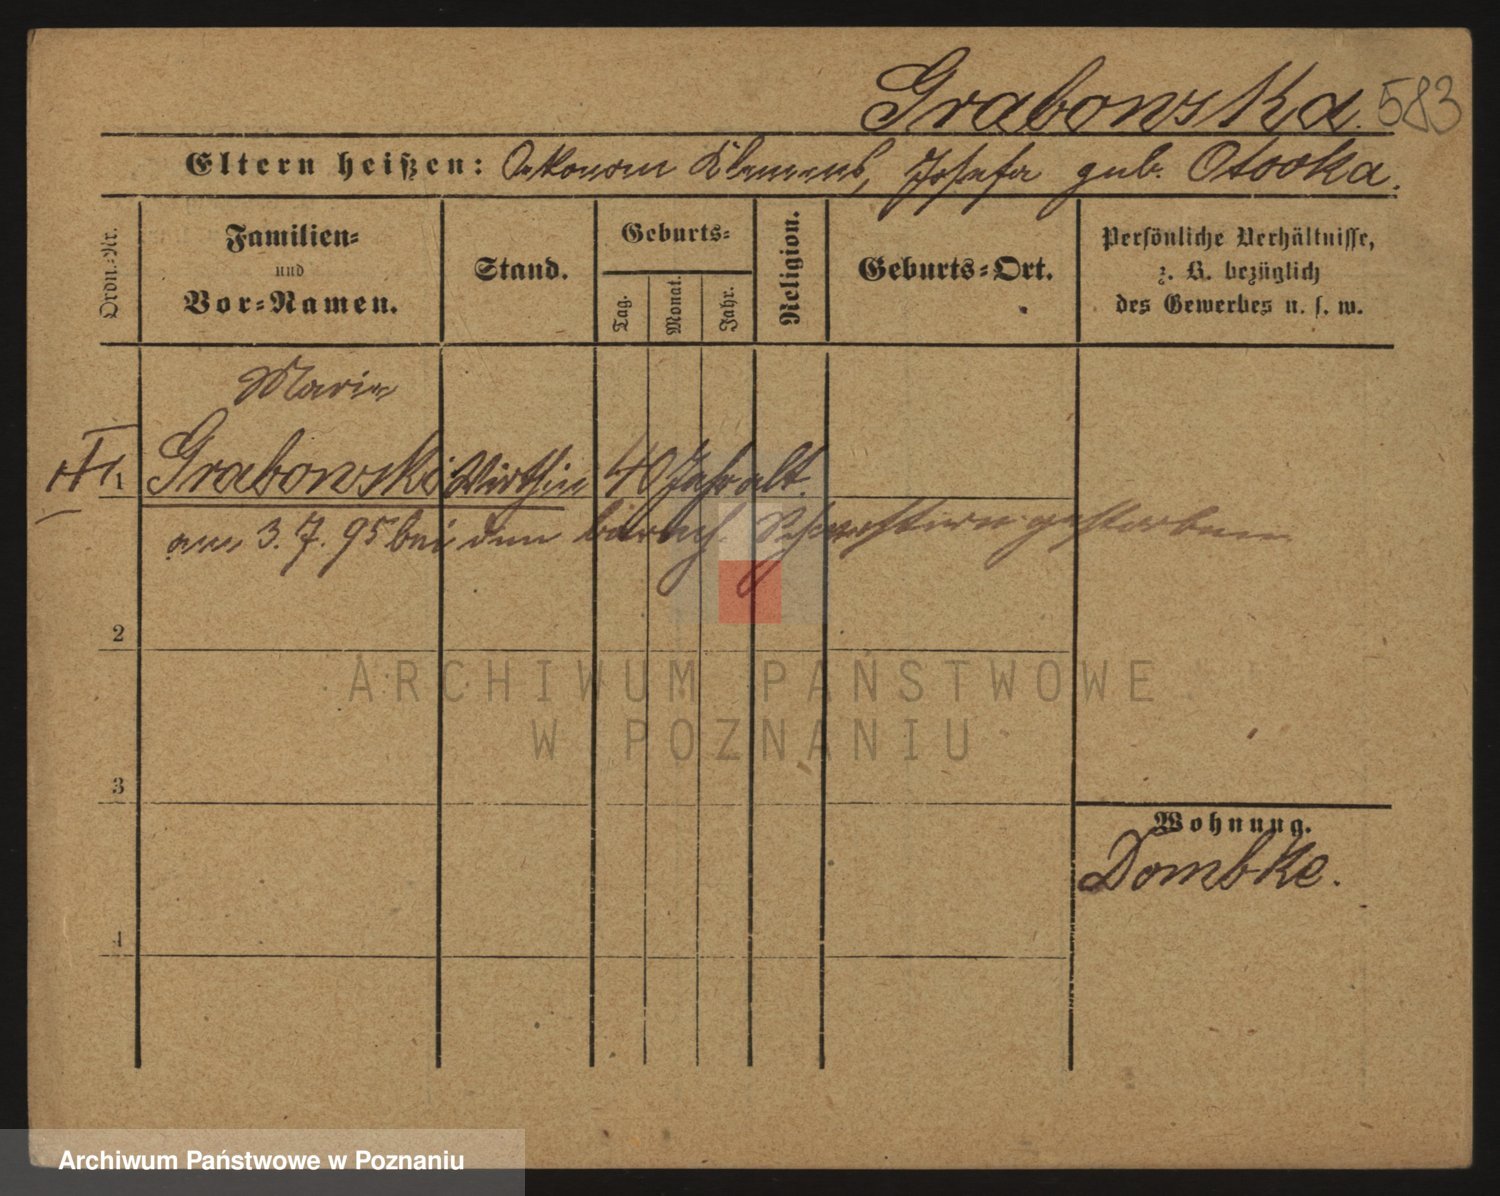 Grabowska. 583
Eltern heißen: Oekonom Klemens, Josefa geb. Otocka.
Ordn.-Nr.
Familien-
und
Vor-Namen.
Stand.
Geburts-
Tag.
Monat.
Jahr.
Religion.
Geburts-Ort.
Persönliche Verhältnisse,
z. B. bezüglich
des Gewerbes u. s. w.
Marie
1 Grabowski Wirthin 40 Jahr alt.
am 3. 7. 95 bei den barmh. Schwestern gestorben
2
3
4
Wohnung.
Dombke.
ARCHIWUM PAŃSTWOWE
W POZNANIU
Archiwum Państwowe w Poznaniu